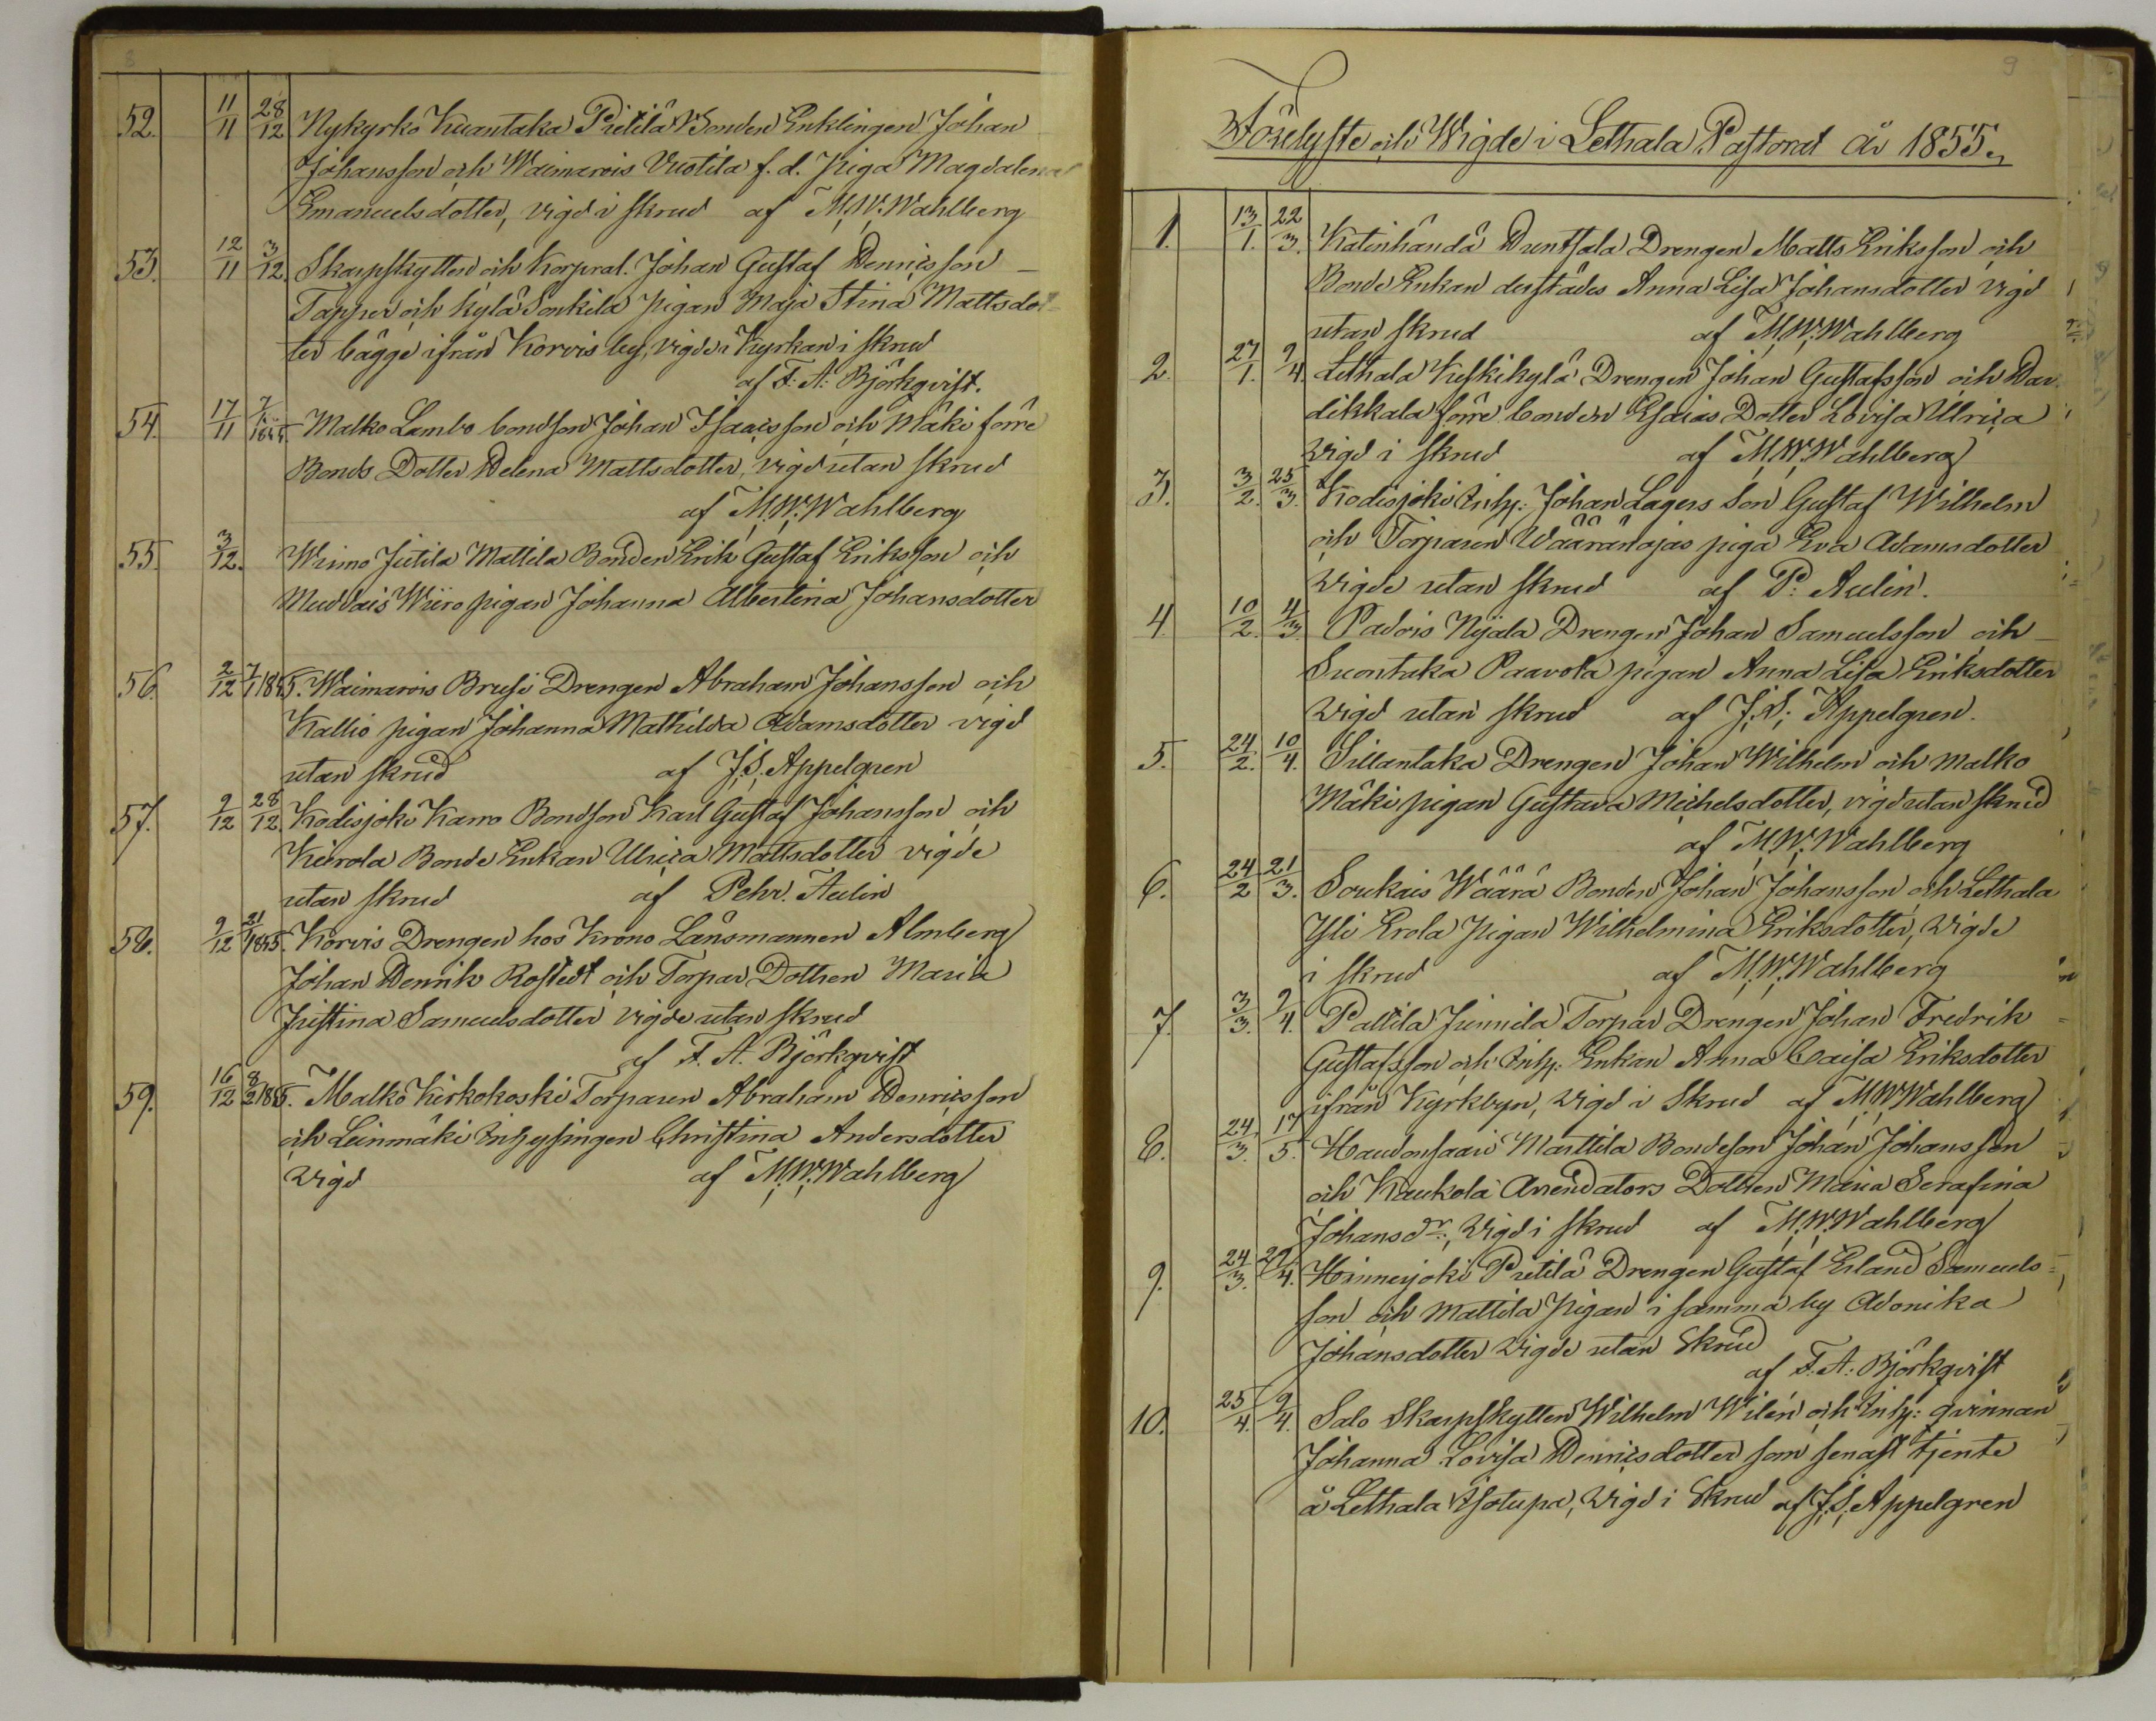 8
52. 11/11 28/12 Nykyrko Kuantaka Pietilä Bonden Enklingen Johan
Johansson och Waimarois Uvotila f. d. Piga Magdalena
Emanuelsdotter, vigd i skrud af M.W. Wahlberg
53. 12/11 3/12. Skarpskytten och Korpral. Johan Gustaf Henricsson
Tapper och Kylä Sonkila pigan Maja Stina Mattsdot=
ter bägge ifrån Korvis by, vigde i Kyrkan i skrud
af F. A. Björkqvist.
54. 17/11 7/1 1855. Malko Lambo bondson Johan Isaacsson och Mäki förre
Bonds Dotter Helena Mattsdotter, vigd utan skrud
af M.W. Wahlberg
55. 3/12. Wirmo Jutila Mattila Bonden Erik Gustaf Eriksson och
Muddais Wiiro pigan Johanna Albertina Johansdotter
56. 2/12 7/1 1855. Waimarois Brusi Drengen Abraham Johansson och
Kallio pigan Johanna Mathilda Adamsdotter vigd
utan skrud af J.S. Appelgren
57. 9/12 28/12 Kodisjoki Karro Bondson Karl Gustaf Johansson och
Kierola Bonde Enkan Ulrica Mattsdotter vigde
utan skrud af Pehr. Aulin
58. 9/12 21/1 1855. Korvis Drengen hos Krono Länsmannen Almberg
Johan Henrik Rostedt och Torpar Dottren Maria
Justina Samuelsdotter vigde utan skrud
af F. A. Björkqvist
59. 16/12 8/2 1855. Malko Kirkokoski Torparen Abraham Henricsson
och Leinmäki Inhysingen Christina Andersdotter
Vigd af M.W. Wahlberg
9
Förelyste och Wigde i Lethala Pastorat År 1855.
1. 13/1. 22/3. Katinhändä Huntsala Drengen Matts Eriksson och
Bonde Enkan derstädes Anna Lisa Johansdotter vigd
utan skrud af M.W. Wahlberg
2. 27/1. 9/4. Lethala Kuskikylä Drengen Johan Gustafsson och Har
dikkala förre bonden Esaias Dotter Lovisa Ulrica
Vigd i skrud af M.W. Wahlberg
3. 3/2. 25/3. Kodisjoki Inhs: Johan Lagers Son Gustaf Wilhelm
och Torparen Wääränojas piga Eva Adamsdotter
Vigde utan skrud af P. Aulin.
4. 10/2. 4/3. Padois Nijala Drengen Johan Samuelsson och
Suontaka Paavola pigan Anna Lisa Eriksdotter
Vigd utan skrud af J.S. Appelgren.
5. 24/2. 10/4. Sillantaka Drengen Johan Wilhelm och Malko
Mäki pigan Gustava Michelsdotter, vigd utan skrud
af M.W. Wahlberg
6. 24/2 21/3. Soukais Wäärä Bonden Johan Johansson och Lethala
Yli Erola Pigan Wilhelmina Eriksdotter, Vigde
i skrud af M.W. Wahlberg
7. 3/3. 9/4. Pattila Junnila Torpar Drengen Johan Fredrik
Gustafsson och Inhs: Enkan Anna Caisa Eriksdotter
ifrån Kyrkbyn, Vigd i Skrud af M.W. Wahlberg
8. 24/3. 17/5. Haudonsaari Marttila Bondeson Johan Johansson
och Kaukola Arrendators Dottren Maria Serafina
Johansdr:, Vigd i skrud af M.W. Wahlberg
9. 24/3. 29/4. Hinnerjoki Prtilä Drengen Gustaf Erland Samuels=
son och Mattila Pigan i samma by Adonika
Johansdotter Vigde utan Skrud
af F. A. Björkqvist
10. 25/4. 9/4. Salo Skarpskytten Wilhelm Wilén och Inhs: qvinnan
Johanna Lovisa Henricsdotter som senast tjente
å Lethala Isotupa, Vigd i Skrud af J.S. Appelgren